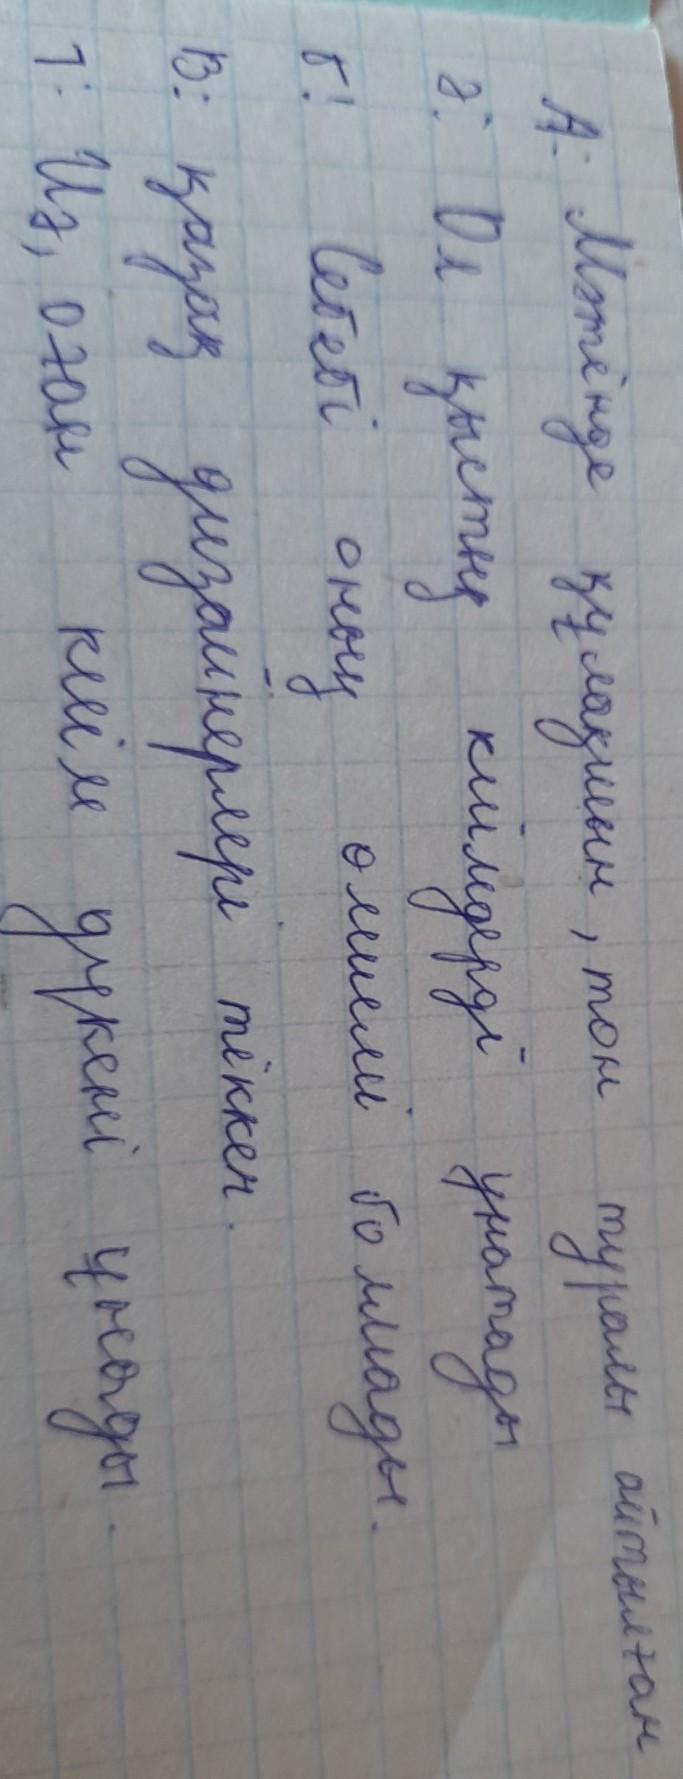 А: Мәтінде құлақшын, тон туралы айтылған
ә: Ол қыстың киімдерді ұнатады
б: Себебі оның өлшемі болмады.
В: қазақ дизайнерлері тіккен.
Г: Иә, оған киім дүкені ұнады.